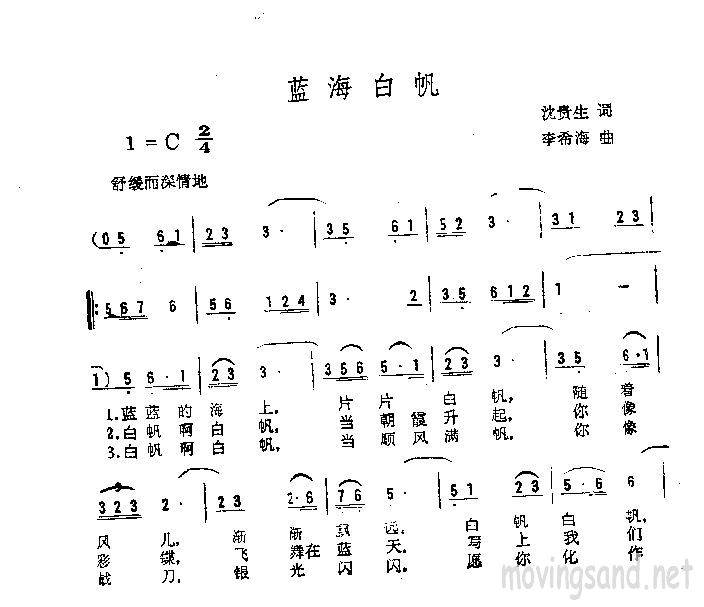 蓝海白帆
沈贵生 词
1 = C 2/4
李希海 曲
舒缓而深情地
(05 61 | 23 3· | 35 61 | 52 3· | 31 23 |
‖: 567 6 | 56 124 | 3· 2 | 35 612 | 1 — |
1) 5 6·1 | 23 3· | 356 5·1 | 23 3· | 35 6·1 |
1.蓝蓝的海上, 片片白帆, 随着
2.白帆啊白帆, 当朝霞升起, 你像
3.白帆啊白帆, 当顺风满帆, 你像
323 2· | 23 2·6 | 76 5· | 51 23 | 5·6 6 |
风儿, 渐渐飘远。 白帆上白帆,
彩蝶, 飞舞在蓝天。 写 我们
战刀, 银光闪闪。 愿你化作
movingsand.net